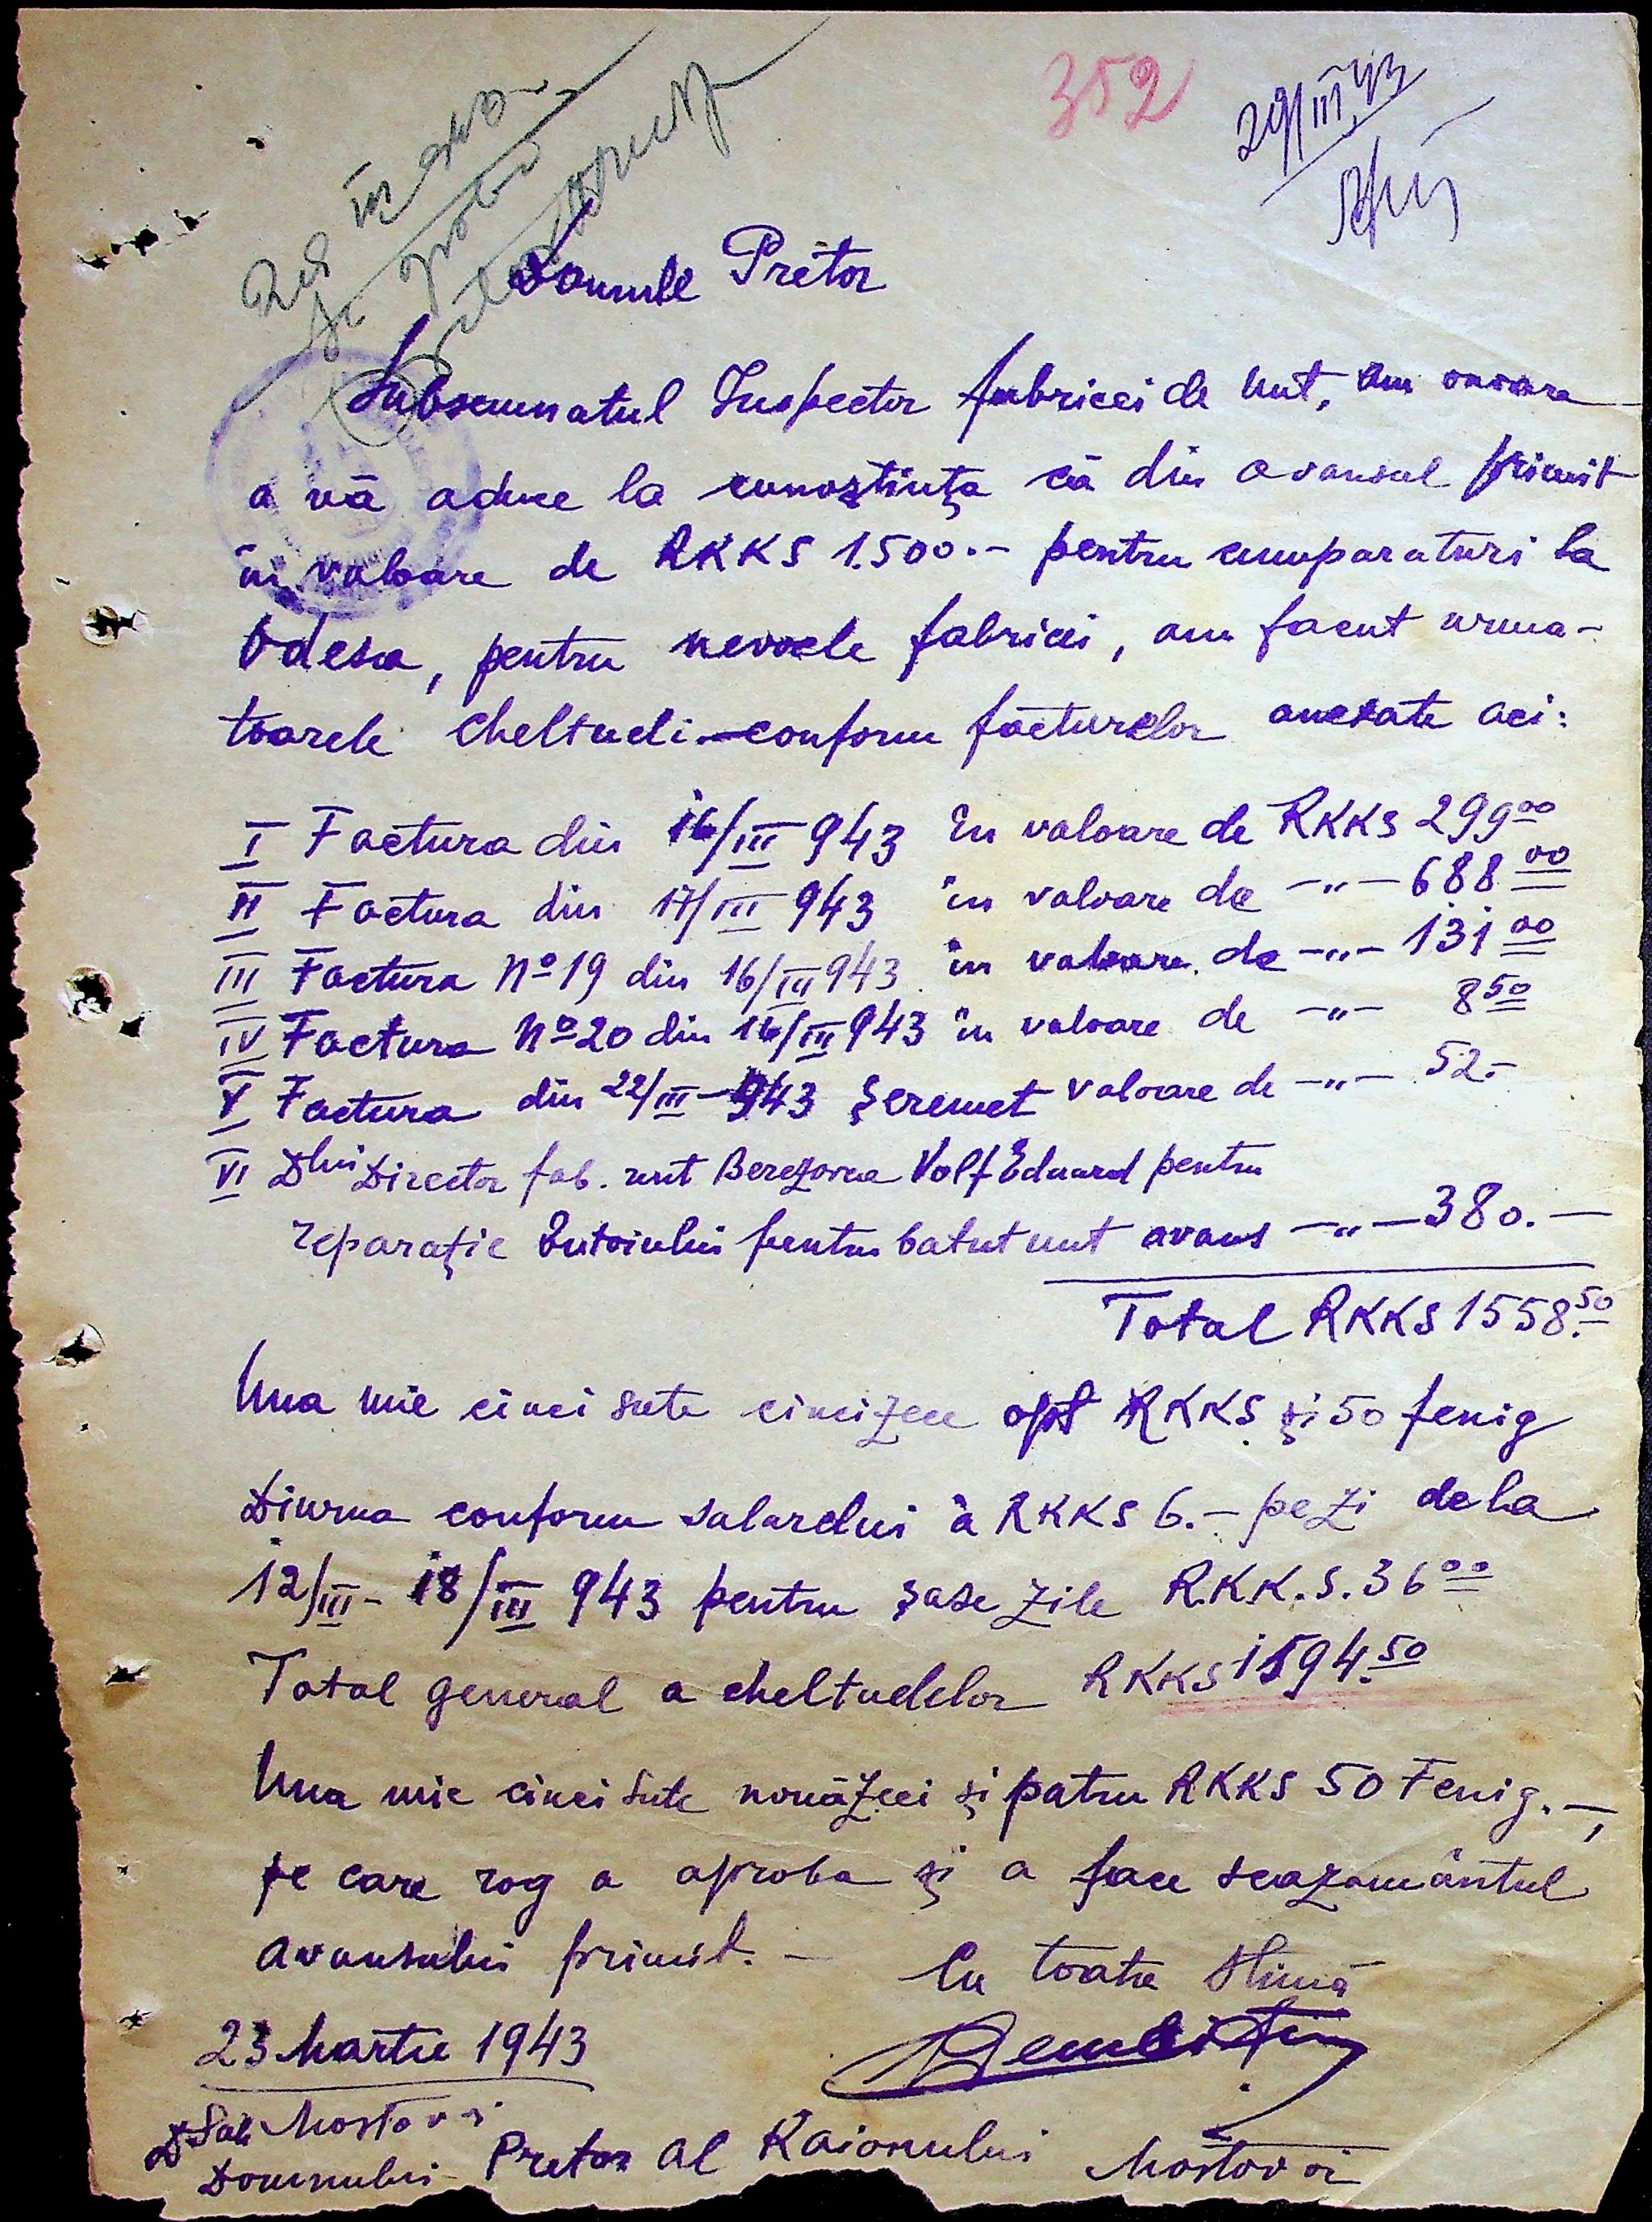 352
29/III 943
Domnule Pretor
Subsemnatul Inspector fabricei de unt, am onoare
a vă aduce la cunoștința că din avansul primit
în valoare de RKKS 1.500.- pentru cumparaturi la
Odesa, pentru nevoele fabricei, am facut urma-
toarele cheltueli conform facturelor anexate aci:
I Factura din 16/III 943 în valoare de RKKS 299 00
II Factura din 17/III 943 în valoare de -"- 688 00
III Factura No 19 din 16/III 943 în valoare de -"- 131 00
IV Factura No 20 din 16/III 943 în valoare de -"- 8 50
V Factura din 22/III - 943 Șeremet valoare de -"- 52.-
VI Dlui Director fab. unt Berezovca Volf Eduard pentru
reparație Butoiului pentru batut unt avans -"- 380.-
Total RKKS 1558.50
Una mie cinci sute cincizeci opt RKKS și 50 fenig
Diurna conform salarelui à RKKS 6.- pe zi dela
12/III - 18/III 943 pentru șase zile R.K.K.S. 36 00
Total general a cheltuelelor RKKS 1594.50
Una mie cinci sute nouăzeci și patru RKKS 50 Fenig.-,
pe care rog a aproba și a face scazamântul
avansului primit. -
Cu toata Stimă
23 Martie 1943
Mostovoi
Domnului Pretor al Raionului Mostovoi